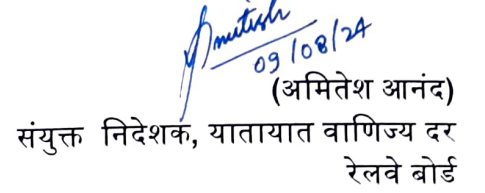 Amitesh
09/08/24
(अमितेश आनंद)
संयुक्त निदेशक, यातायात वाणिज्य दर
रेलवे बोर्ड